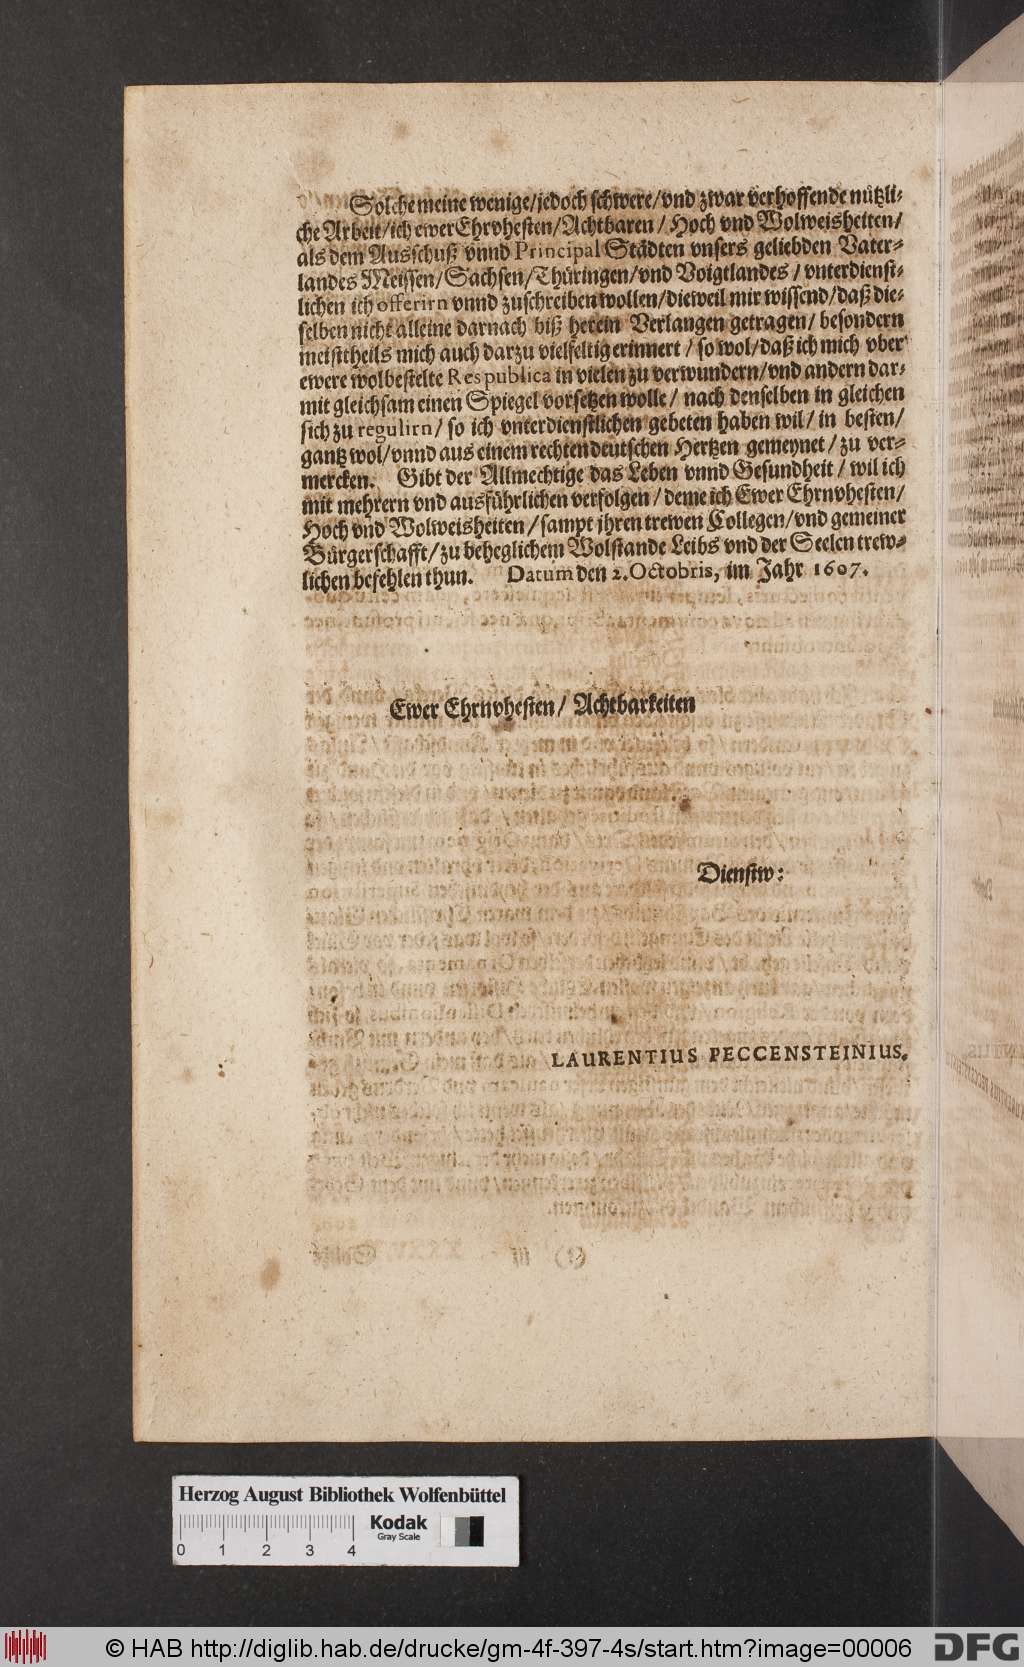 Solche meine wenige/jedoch schwere/vnd zwar verhoffende nützli-
che Arbeit/ich ewer Ehrnvhesten/Achtbaren/Hoch vnd Wolweisheiten/
als dem Ausschuß vnnd Principal Städten vnsers geliebden Vater-
landes Meissen/Sachsen/Thüringen/vnd Voigtlandes/vnterdienst-
lichen ich offerirn vnnd zuschreiben wollen/dieweil mir wissend/daß die-
selben nicht alleine darnach biß herein Verlangen getragen/besondern
meisttheils mich auch darzu vielfeltig erinnert/so wol/daß ich mich vber
ewere wolbestelte Respublica in vielen zu verwundern/vnd andern dar-
mit gleichsam einen Spiegel vorsetzen wolle/nach denselben in gleichen
sich zu regulirn/so ich vnterdienstlichen gebeten haben wil/in besten/
gantz wol/vnnd aus einem rechten deutschen Hertzen gemeynet/zu ver-
mercken. Gibt der Allmechtige das Leben vnnd Gesundheit/wil ich
mit mehrern vnd ausführlichen verfolgen/deme ich Ewer Ehrnvhesten/
Hoch vnd Wolweisheiten/sampt ihren trewen Collegen/vnd gemeiner
Bürgerschafft/zu beheglichem Wolstande Leibs vnd der Seelen trew-
lichen befehlen thun. Datum den 2. Octobris, im Jahr 1607.
Ewer Ehrnvhesten/Achtbarkeiten
Dienstw:
LAURENTIUS PECCENSTEINIUS.
Herzog August Bibliothek Wolfenbüttel
Kodak
Gray Scale
0 1 2 3 4
© HAB http://diglib.hab.de/drucke/gm-4f-397-4s/start.htm?image=00006
DFG